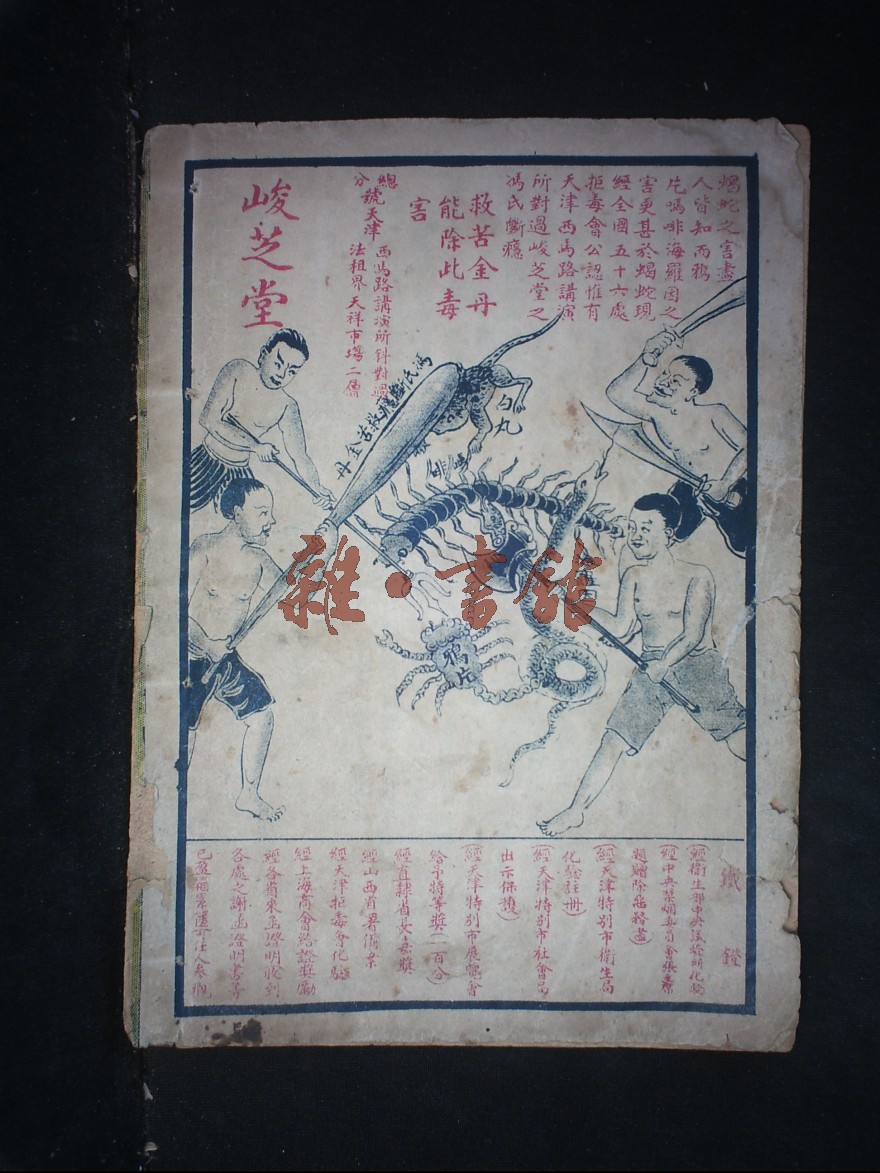 蝎蛇之害盡
人皆知而鴉
片嗎啡海羅因之
害更甚於蝎蛇現
經全國五十六處
拒毒會公認惟有
天津西馬路講演
所對過峻芝堂之
馮氏斷癮
救苦金丹
能除此毒
害
總
分號天津
西馬路講演所斜對過
法租界天祥市場二層
峻芝堂
馮氏斷癮救苦金丹
白丸
嗎啡
鴉片
雜·書館
鐵證
(經衛生部中央
(經中央禁煙委員會張
題贈除惡務盡)
(經天津特別市衛生局
化驗註冊)
(經天津特別市社會局
出示保護)
(經天津特別市展覽會
給予特等獎一百分)
經直隸省長嘉獎
經山西省署備案
經天津拒毒會化驗
經上海商會給證獎勵
經各省來函證明收到
各處之謝函證明書等
已盈箱累篋可任人參觀